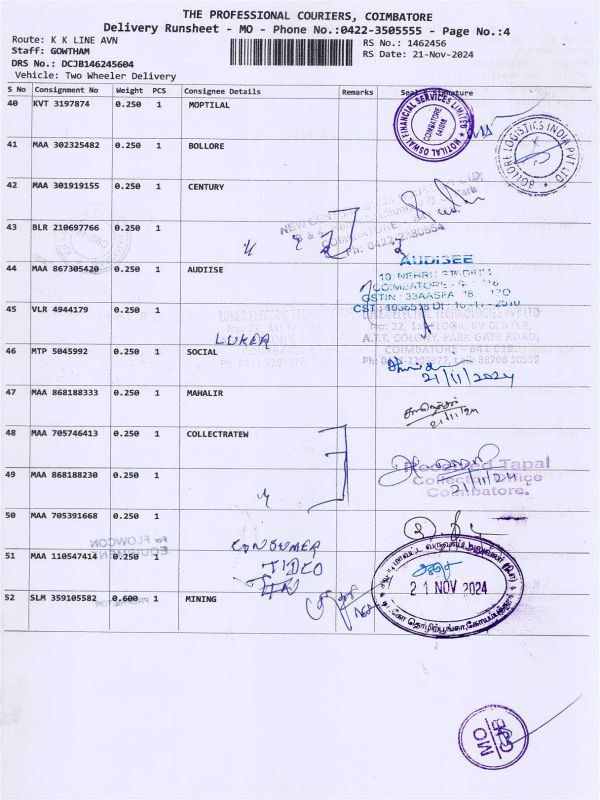 THE PROFESSIONAL COURIERS, COIMBATORE
Delivery Runsheet - MO - Phone No.:0422-3505555 - Page No.:4
Route: K K LINE AVN
Staff: GOWTHAM
DRS No.: DCJB146245604
Vehicle: Two Wheeler Delivery
RS No.: 1462456
RS Date: 21-Nov-2024
S No Consignment No Weight PCS Consignee Details Remarks Seal & Signature
40 KVT 3197874 0.250 1 MOPTILAL
MOTILAL OSWAL FINANCIAL SERVICES LIMITED
COIMBATORE
41 MAA 302325482 0.250 1 BOLLORE
BOLLORE LOGISTICS INDIA PVT LTD
42 MAA 301919155 0.250 1 CENTURY
43 BLR 210697766 0.250 1
44 MAA 867305420 0.250 1 AUDIISE
AUDISEE
45 VLR 4944179 0.250 1
LUKER
No: 22, 1st FLOOR, RV CENTER,
A.T.T. COLONY, PARK GATE ROAD,
COIMBATORE - 641 018.
46 MTP 5045992 0.250 1 SOCIAL
21/11/2024
47 MAA 868188333 0.250 1 MAHALIR
21/11/24
48 MAA 705746413 0.250 1 COLLECTRATEW
Received Tapal
Collector Office
Coimbatore.
21/11/24
49 MAA 868188230 0.250 1
50 MAA 705391668 0.250 1
For FLOWCON
EQUIPMEN
CONSUMER
51 MAA 110547414 0.250 1
TIDCO
21 NOV 2024
52 SLM 359105582 0.600 1 MINING
MO
CBE